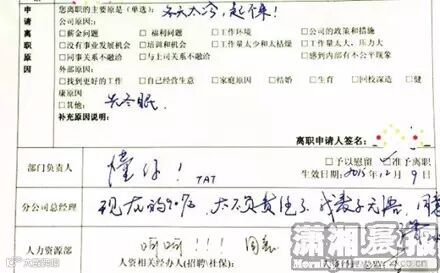 申请离职原因
您离职的主要原是(单选): 冬天太冷，起不来！
公司原因:
□薪金问题 □福利问题 □工作环境 □公司的政策和措施
□没有事业发展机会 □培训和机会 □工作量太少和太枯燥 □工作量太大，压力大
□同事关系不融洽 □与上司关系不融洽 □感到内部有不公平现象
外部原因:
□找到更好的工作 □自己经营生意 □家庭原因 □结婚 □生育 □回校深造 □健
康原因
□其他: 去冬眠
补充原因说明:
离职申请人签名:
部门负责人 懂你！ TAT
□予以慰留 □准予离职
生效日期: 2015年12月9日
分公司总经理 现在的90后，太不负责任了，我表示无语，同意
人力资源部 呵呵!!! 同意
人资相关经办人(招聘/社保):
潇湘晨报